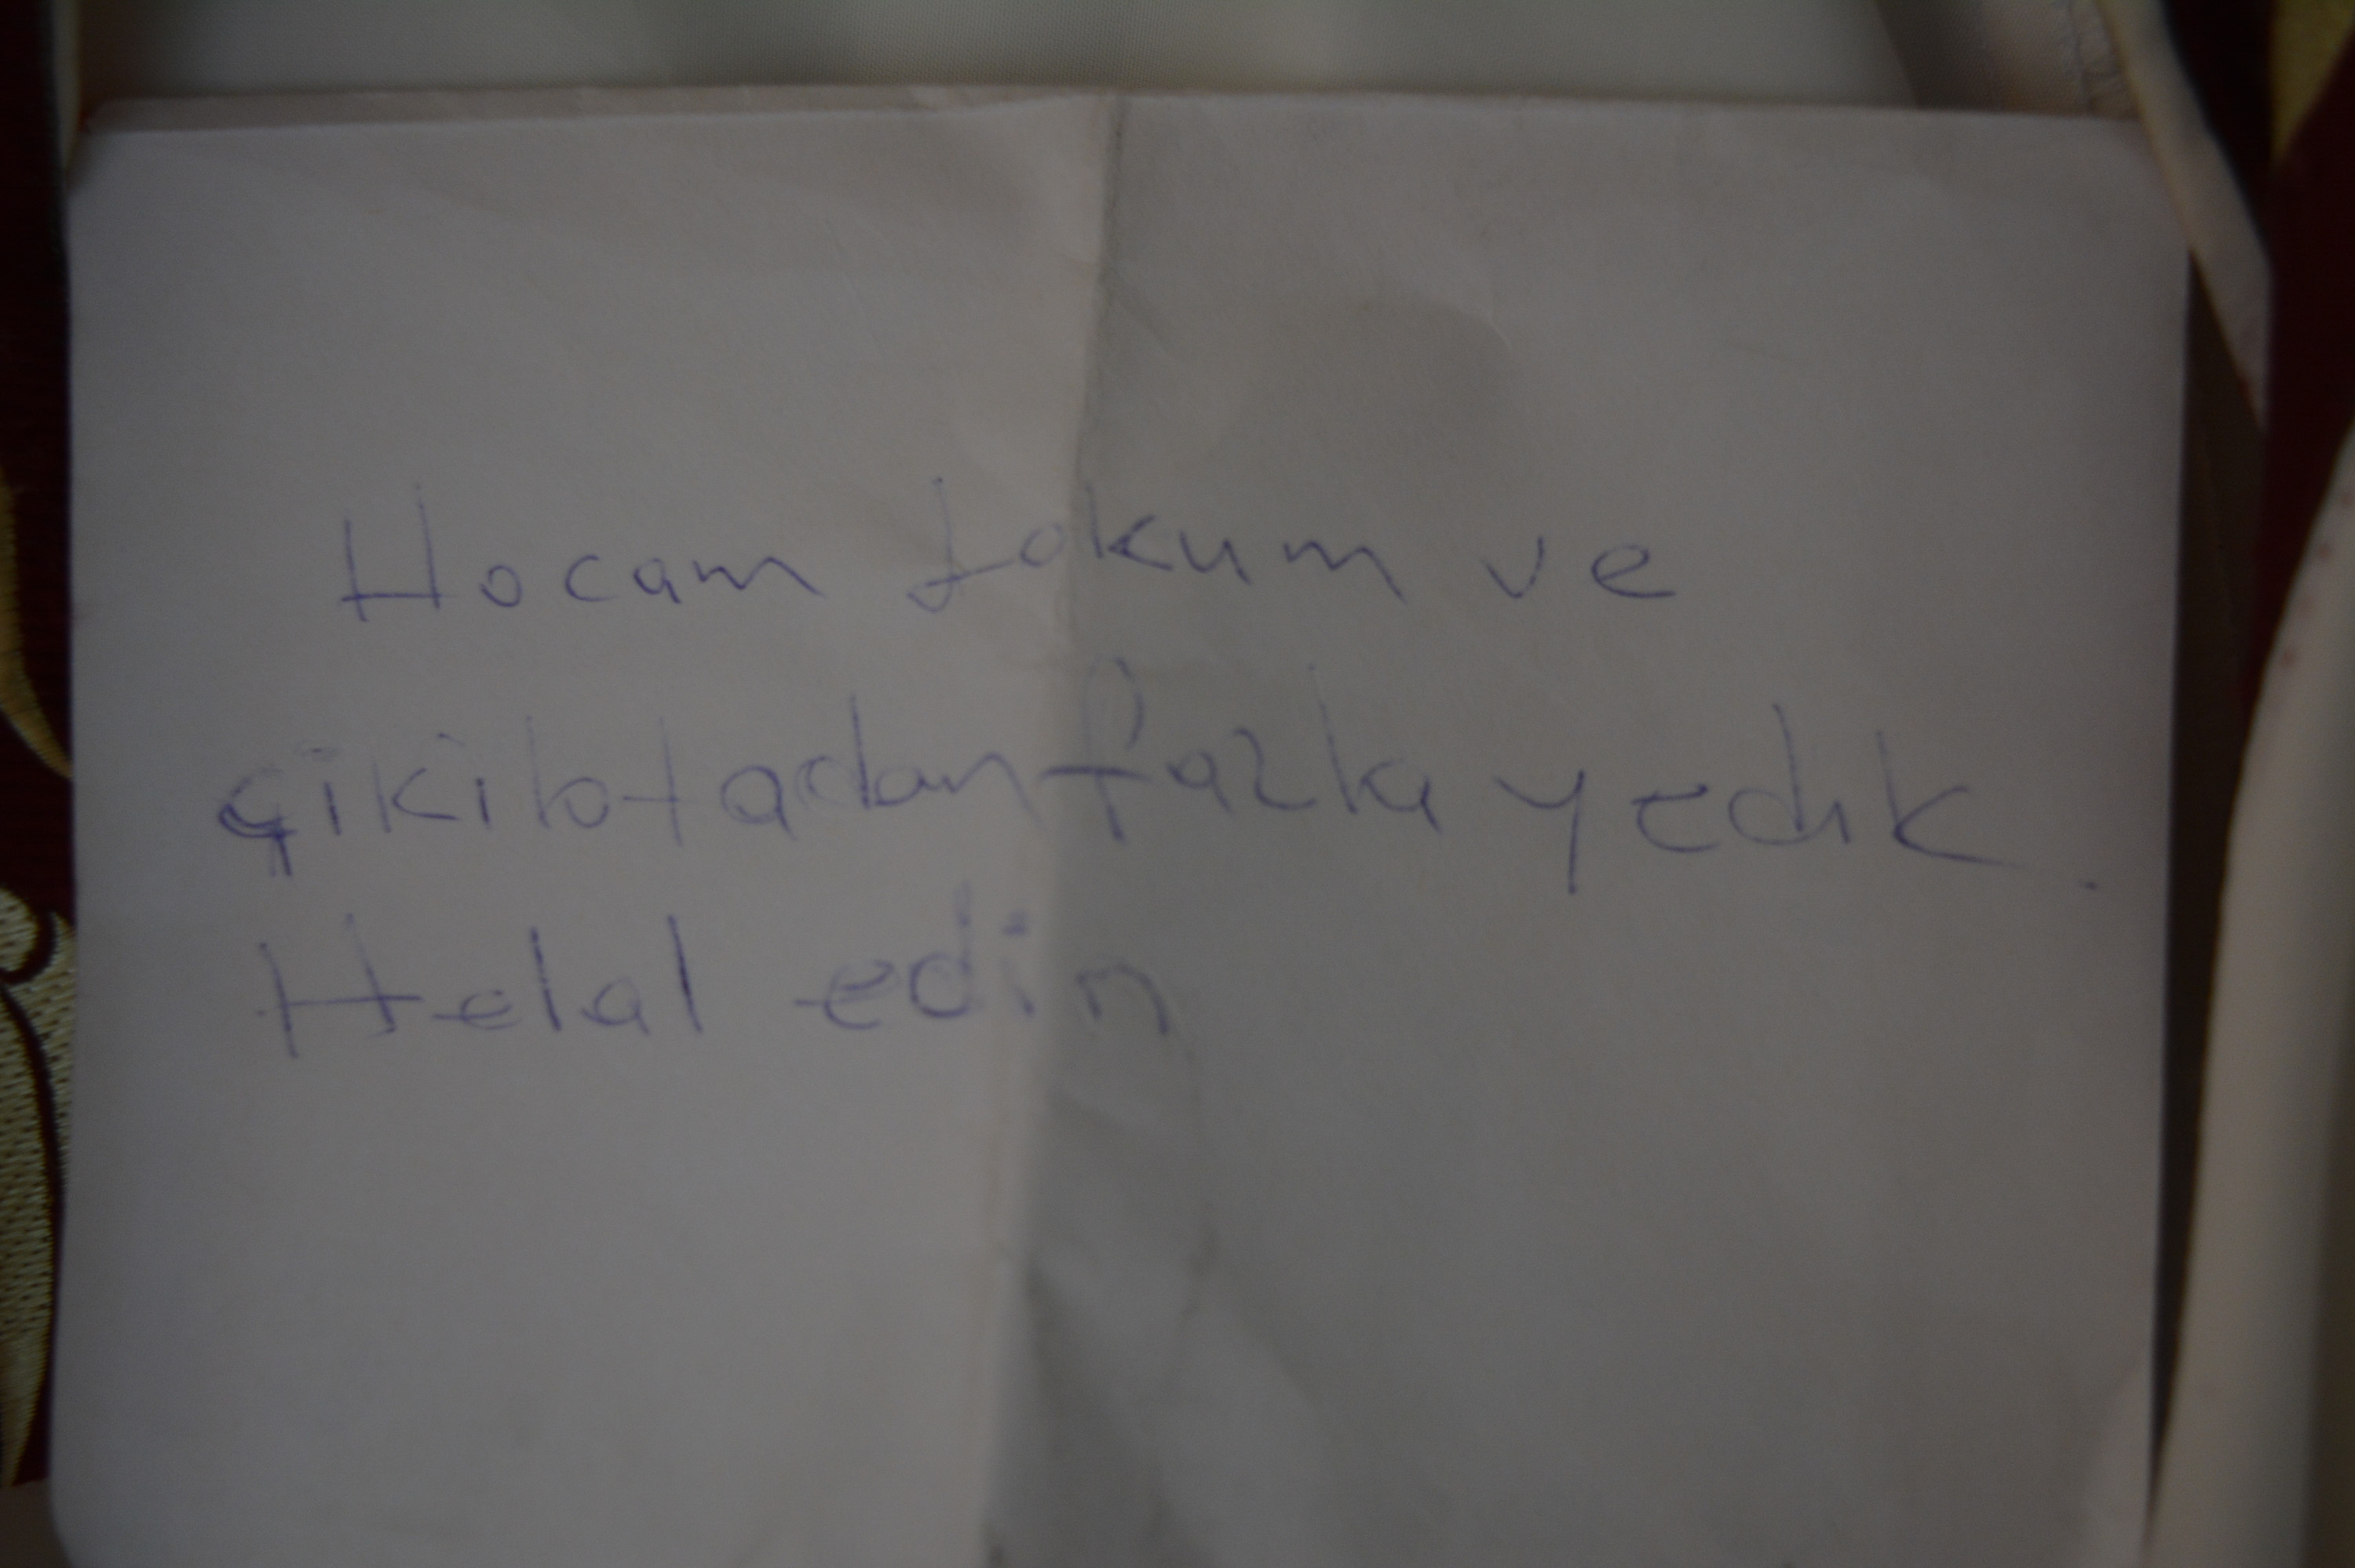 Hocam lokum ve
çikilotadan fazla yedik.
Helal edin